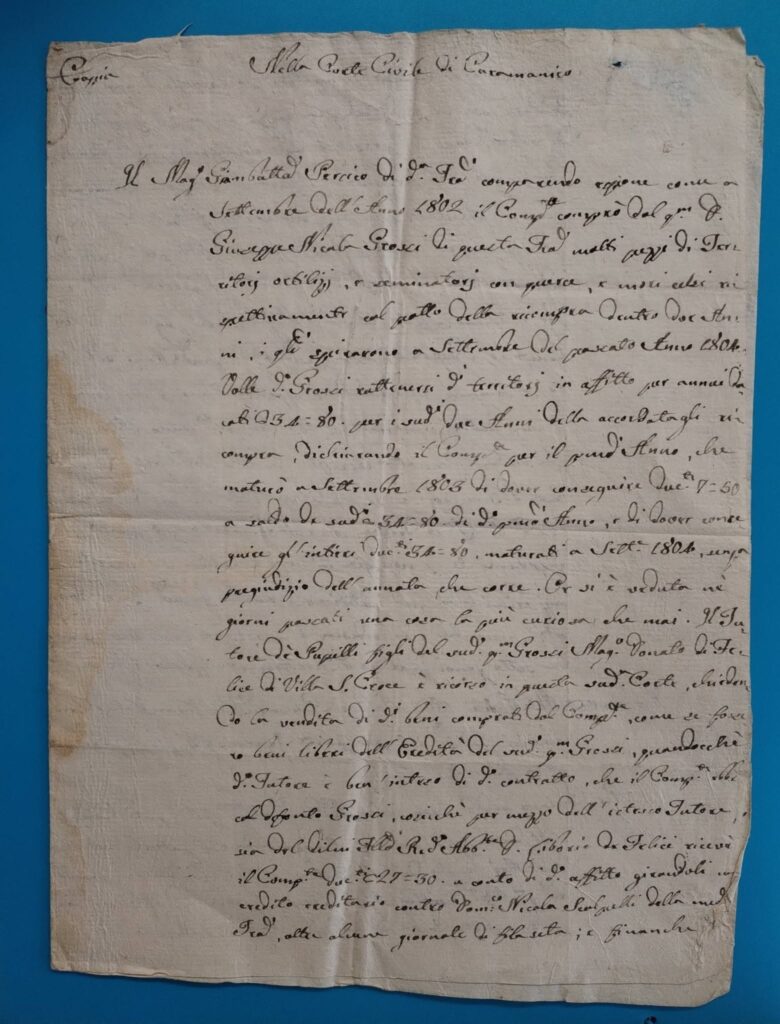 Coppia
Nella Corte Civile di Caramanico
Il Mag.º Giambatt.ª Persico di d.ª Trã comparendo espone come a
Settembre dell'Anno 1802 il Comp.te comprò dal qm D.
Giuseppe Nicola Grossi di questa Trã molti pezzi di Ter-
ritorj ortilizj, e seminatorj con querce, e mori celsi ri
spettivamente col patto della ricompra dentro due An-
ni, i qli spirarono a Settembre del passato Anno 1804.
Volle d.º Grossi rattenersi d.i territorj in affitto per annui du
cati 34=80. per i sud.i due Anni della accordatagli ri
compra, dichiarando il Comp.te per il primo Anno, che
maturò a Settembre 1803 di dover conseguire duc.ti 7=50
a saldo de sud.i 34=80. di d.º primo Anno, e di dover conse
guire gl'intieri duc.ti 34=80. maturati a Sett.e 1804, senza
pregiudizio dell'annata che corre. Or si è veduta nè
giorni passati una cosa la più curiosa che mai. Il Tu-
tore dè Pupilli figli del sud.º qm Grossi Mag.º Donato di Fe-
lice di Villa S. Croce è ricorso in questa sud.ª Corte, chieden
do la vendita di d.i beni comprati dal Comp.te, come se fosse
ro beni liberi dell'Eredità del sud.º qm Grossi, quandocchè
d.º Tutore è ben inteso di d.º contratto, che il Comp.te ebbe
col defonto Grossi, cosicchè per mezzo dell'istesso Tutore,
sia del di lui R.do Abb.te D. Liborio de Felici ricevè
il Comp.te duc.ti 27=30. a conto di d.º affitto girandoli un
credito ereditario contro Dom.co Nicola Scalpelli della med.ª
Trã, oltre alcune giornate di fila seta; e finanche